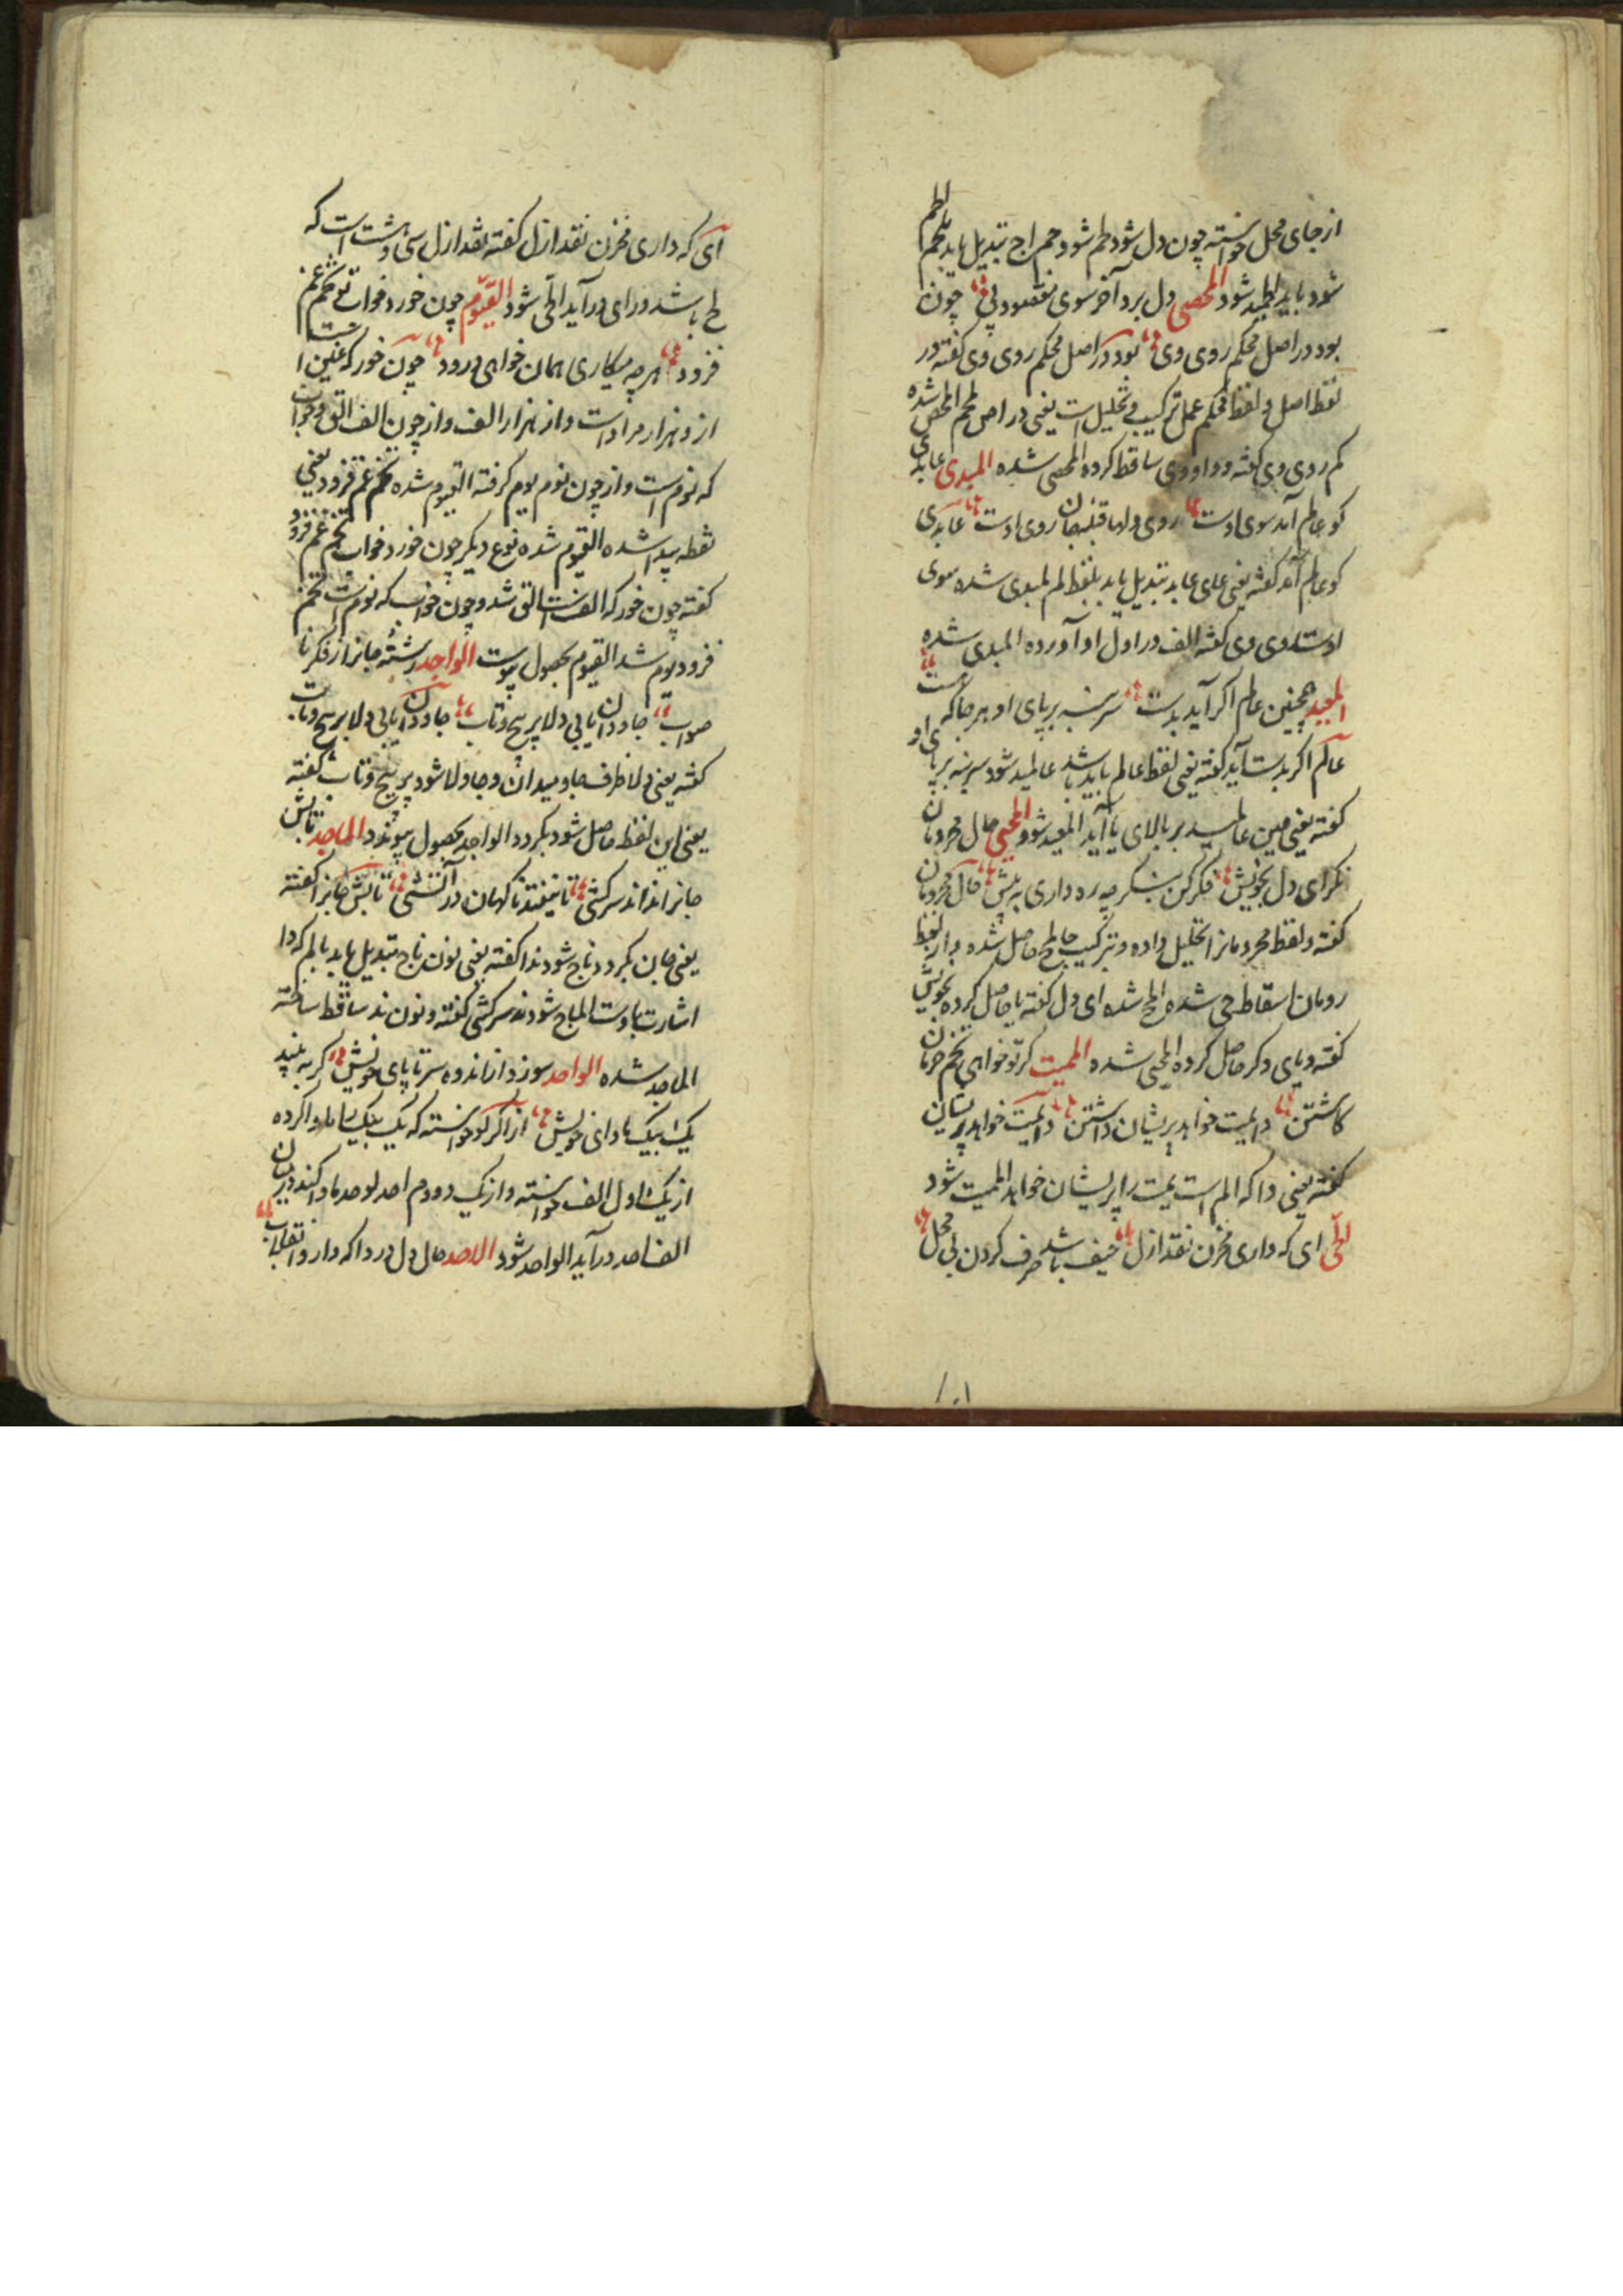 از جای محل خواسته چون دل شود طم شود حم اج تبدیل یابد لحم
شود باید لحمید شود المحصی دل برد آخر سوی مقصود پی چون
بود در اصل محکم روی وی بود در اصل محکم روی وی گفته در
لفظ اصل و لفظ محکم عمل ترکیب و تحلیل است یعنی در اص لمحکم المحص شده
کم روی وی گفته و واو وی ساقط کرده المحصی شده المبدی عابدی
کو عالم آمد سوی اوست روی دلها قبله جان روی اوست عابدی
کو عالم آمد گفته یعنی عای عابد تبدیل یابد بلفظ لم لمبدی شده سوی
اوست روی وی گفته الف در اول او آورده المبدی شده
المعید همچنین عالم اگر آید بدست سر بنه بر پای او هر جا که هست
عالم اگر بدست آید گفته یعنی لفظ عالم باید باشد عالمید شود سر بنه بر پای او
گفته یعنی عین عالمید بر بالای یا آید المعید شود المحیی حال محرومان
نگر ای دل بخویش فکر کن بنگر چه ره داری به پیش حال محرومان
گفته و لفظ محرومانرا تحلیل داده و بترکیب حالمح حاصل شده و از لفظ
رومان اسقاط حی شده المح شده ای دل گفته یا حاصل کرده بخویش
گفته و یای دگر حاصل کرده المحیی شده الممیت گر تو خواهی تخم حرمان
کاشتن دایمیت خواهد پریشان داشتن دایمیت خواهد پریشان
گفته یعنی دا که الم است یمیت را پریشان خواهد الممیت شود
الحی ای که داری مخزن نقد ازل حیف باشد صرف کردن بی محل
ای که داری مخزن نقد ازل گفته نقد ازل سی و هشت است که
لح باشد و رای درآید الحی شود القیوم چون خورد خواب تو تخم غم
فزود هر چه میکاری همان خواهی درود چون خور که عین است
از و هزار مراد است و از هزار الف و از چون الف الق و خواب
که نوم است و از چون نوم یوم گرفته القیوم شده تخم غم فزود یعنی
نقطه پیدا شده القیوم شده نوع دیگر چون خورد خواب تخم غم فزود
گفته چون خور که الف است الق شد و چون خواب که نوم است تخم
فزود یوم شد القیوم بحصول پیوست الواجد رشته جانرا ز فکر نا
صواب جاودان یابی دلا پر پیچ و تاب جاودان یابی دلا پر پیچ و تاب
گفته یعنی دلا ظرف جاو میدان و جاو لا شود پر پیچ و تاب گفته
یعنی این لفظ حاصل شود بگردد الواجد بحصول پیوندد الماجد تابش
جانرا نداند سرکشی تا نیفتد ناگهان در آتشی تابش جانرا گفته
یعنی جان بگردد ناج شود ندا گفته یعنی نون ناج تبدیل یابد بالم که دا
اشارت باوست الماج شود ند سرکشی گفته و نون ند ساقط ساخته
الماجد شده الواحد سوزد از اندوه سر تا پای خویش گر به بیند
یک بیک ماوای خویش از اگر گو خواسته که یک بیک با ماوا کرده
از یک اول الف خواسته و از یک دوم احد لو حد ماوا کند در میان
الف احد درآید الواحد شود الاحد حال دل در دا که دارد انقلاب
۱۰۱